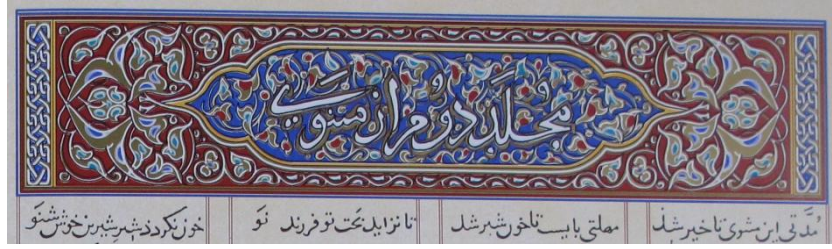 مجلد دوم از مثنوی
مدتی این مثنوی تاخیر شد مهلتی بایست تا خون شیر شد تا نزاید بخت تو فرزند نو خون نگردد شیر شیرین خوش شنو